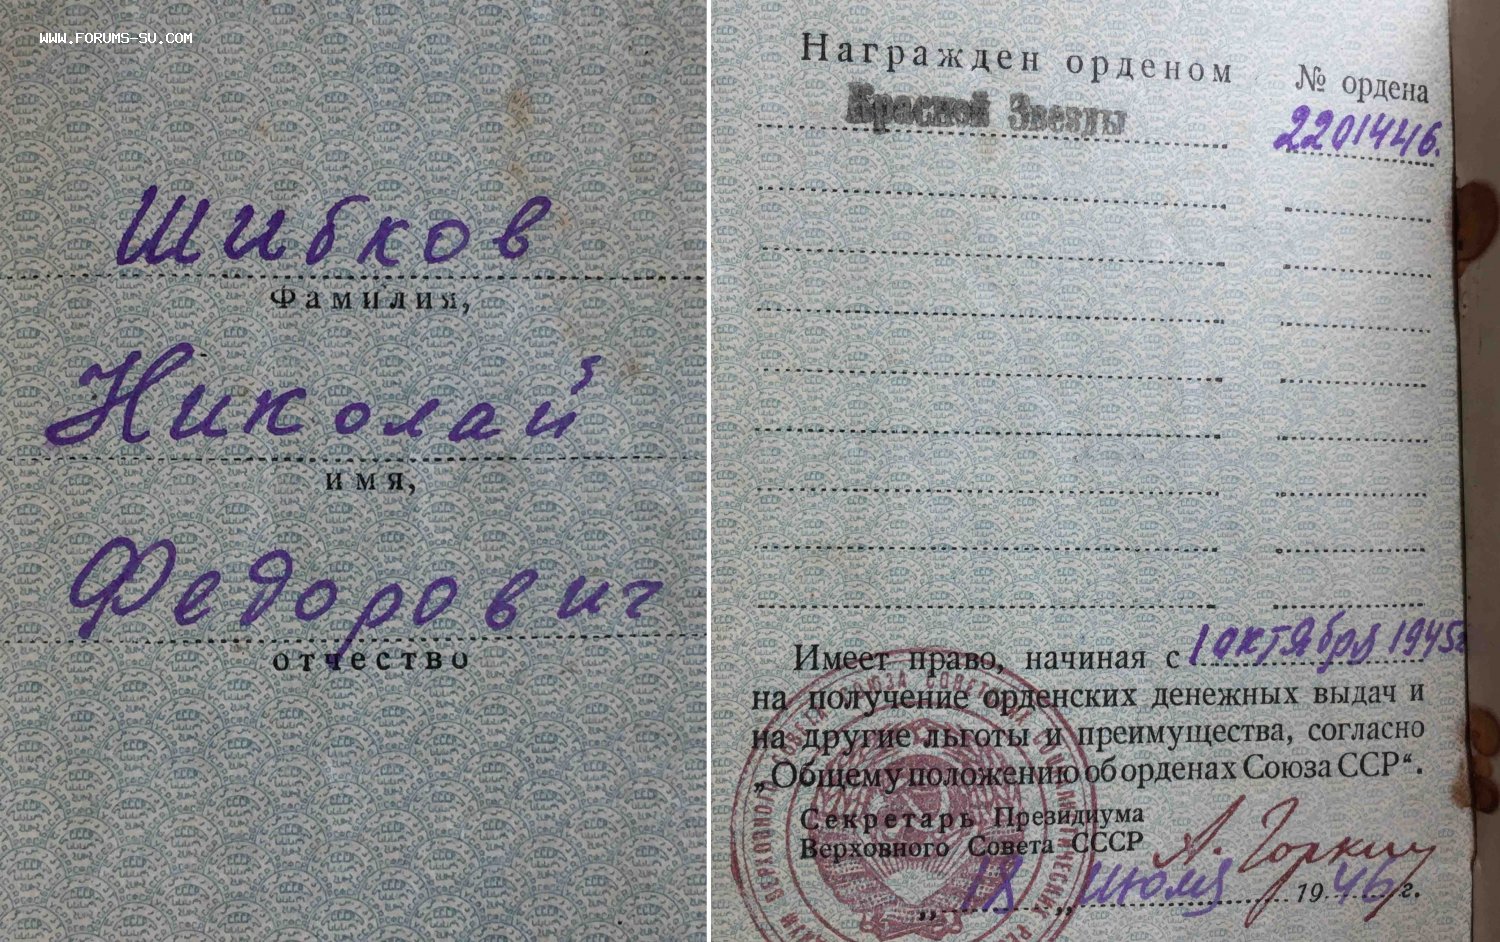 WWW.FORUMS-SU.COM
Шибков
Фамилия,
Николай
имя,
Федорович
отчество
Награжден орденом № ордена
Красной Звезды 2201446.
Имеет право, начиная с 1 октября 1945г
на получение орденских денежных выдач и
на другие льготы и преимущества, согласно
„Общему положению об орденах Союза ССР“.
Секретарь Президиума
Верховного Совета СССР А. Горкин
„18„ июля 1946 г.